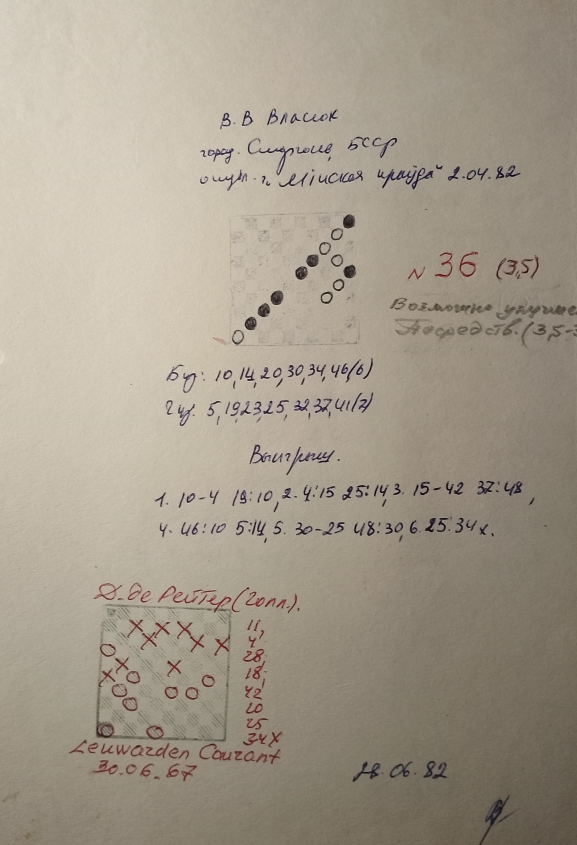 В. В Власюк
город. Сморгонь, БССР
опубл. г. „Мiнская праўда" 2.04.82
N 36 (3,5)
Возможно улучше
Посредств. (3,5-3
Бел: 10,14,20,30,34,46 (6)
Чер. 5,19,23,25,32,37,41 (7)
Выигрыш.
1. 10-4 19:10, 2. 4:15 25:14, 3. 15-42 37:48,
4. 46:10 5:14, 5. 30-25 48:30, 6. 25:34x.
Д. де Рейтер (Голл.).
11,
4,
28,
18,
42,
20
25
34x
Leuwarden Courant
30.06.67
28.06.82